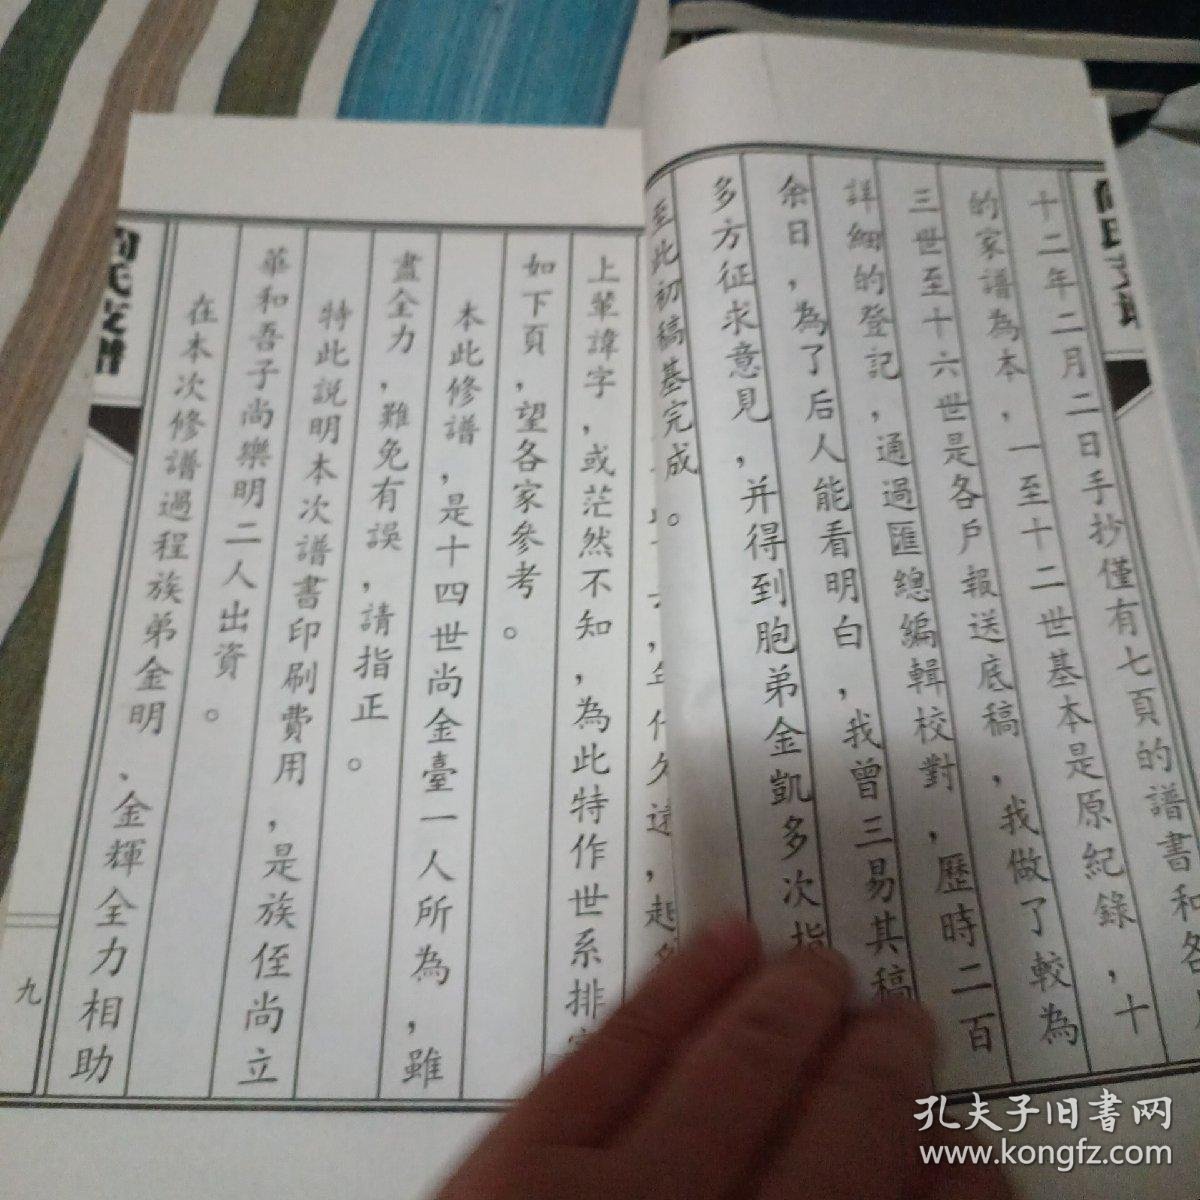 十二年二月二日手抄僅有七頁的譜書和各
的家譜為本，一至十二世基本是原紀錄，十
三世至十六世是各戶報送底稿，我做了較為
詳細的登記，通過匯總編輯校對，歷時二百
余日，為了后人能看明白，我曾三易其稿
多方征求意見，并得到胞弟金凱多次指
至此初稿基完成。
年代久遠，起
上輩諱字，或茫然不知，為此特作世系排
如下頁，望各家參考。
本此修譜，是十四世尚金臺一人所為，雖
盡全力，難免有誤，請指正。
特此説明本次譜書印刷費用，是族侄尚立
華和吾子尚樂明二人出資。
在本次修譜過程族弟金明、金輝全力相助
尚氏支譜
九
孔夫子旧書网
www.kongfz.com